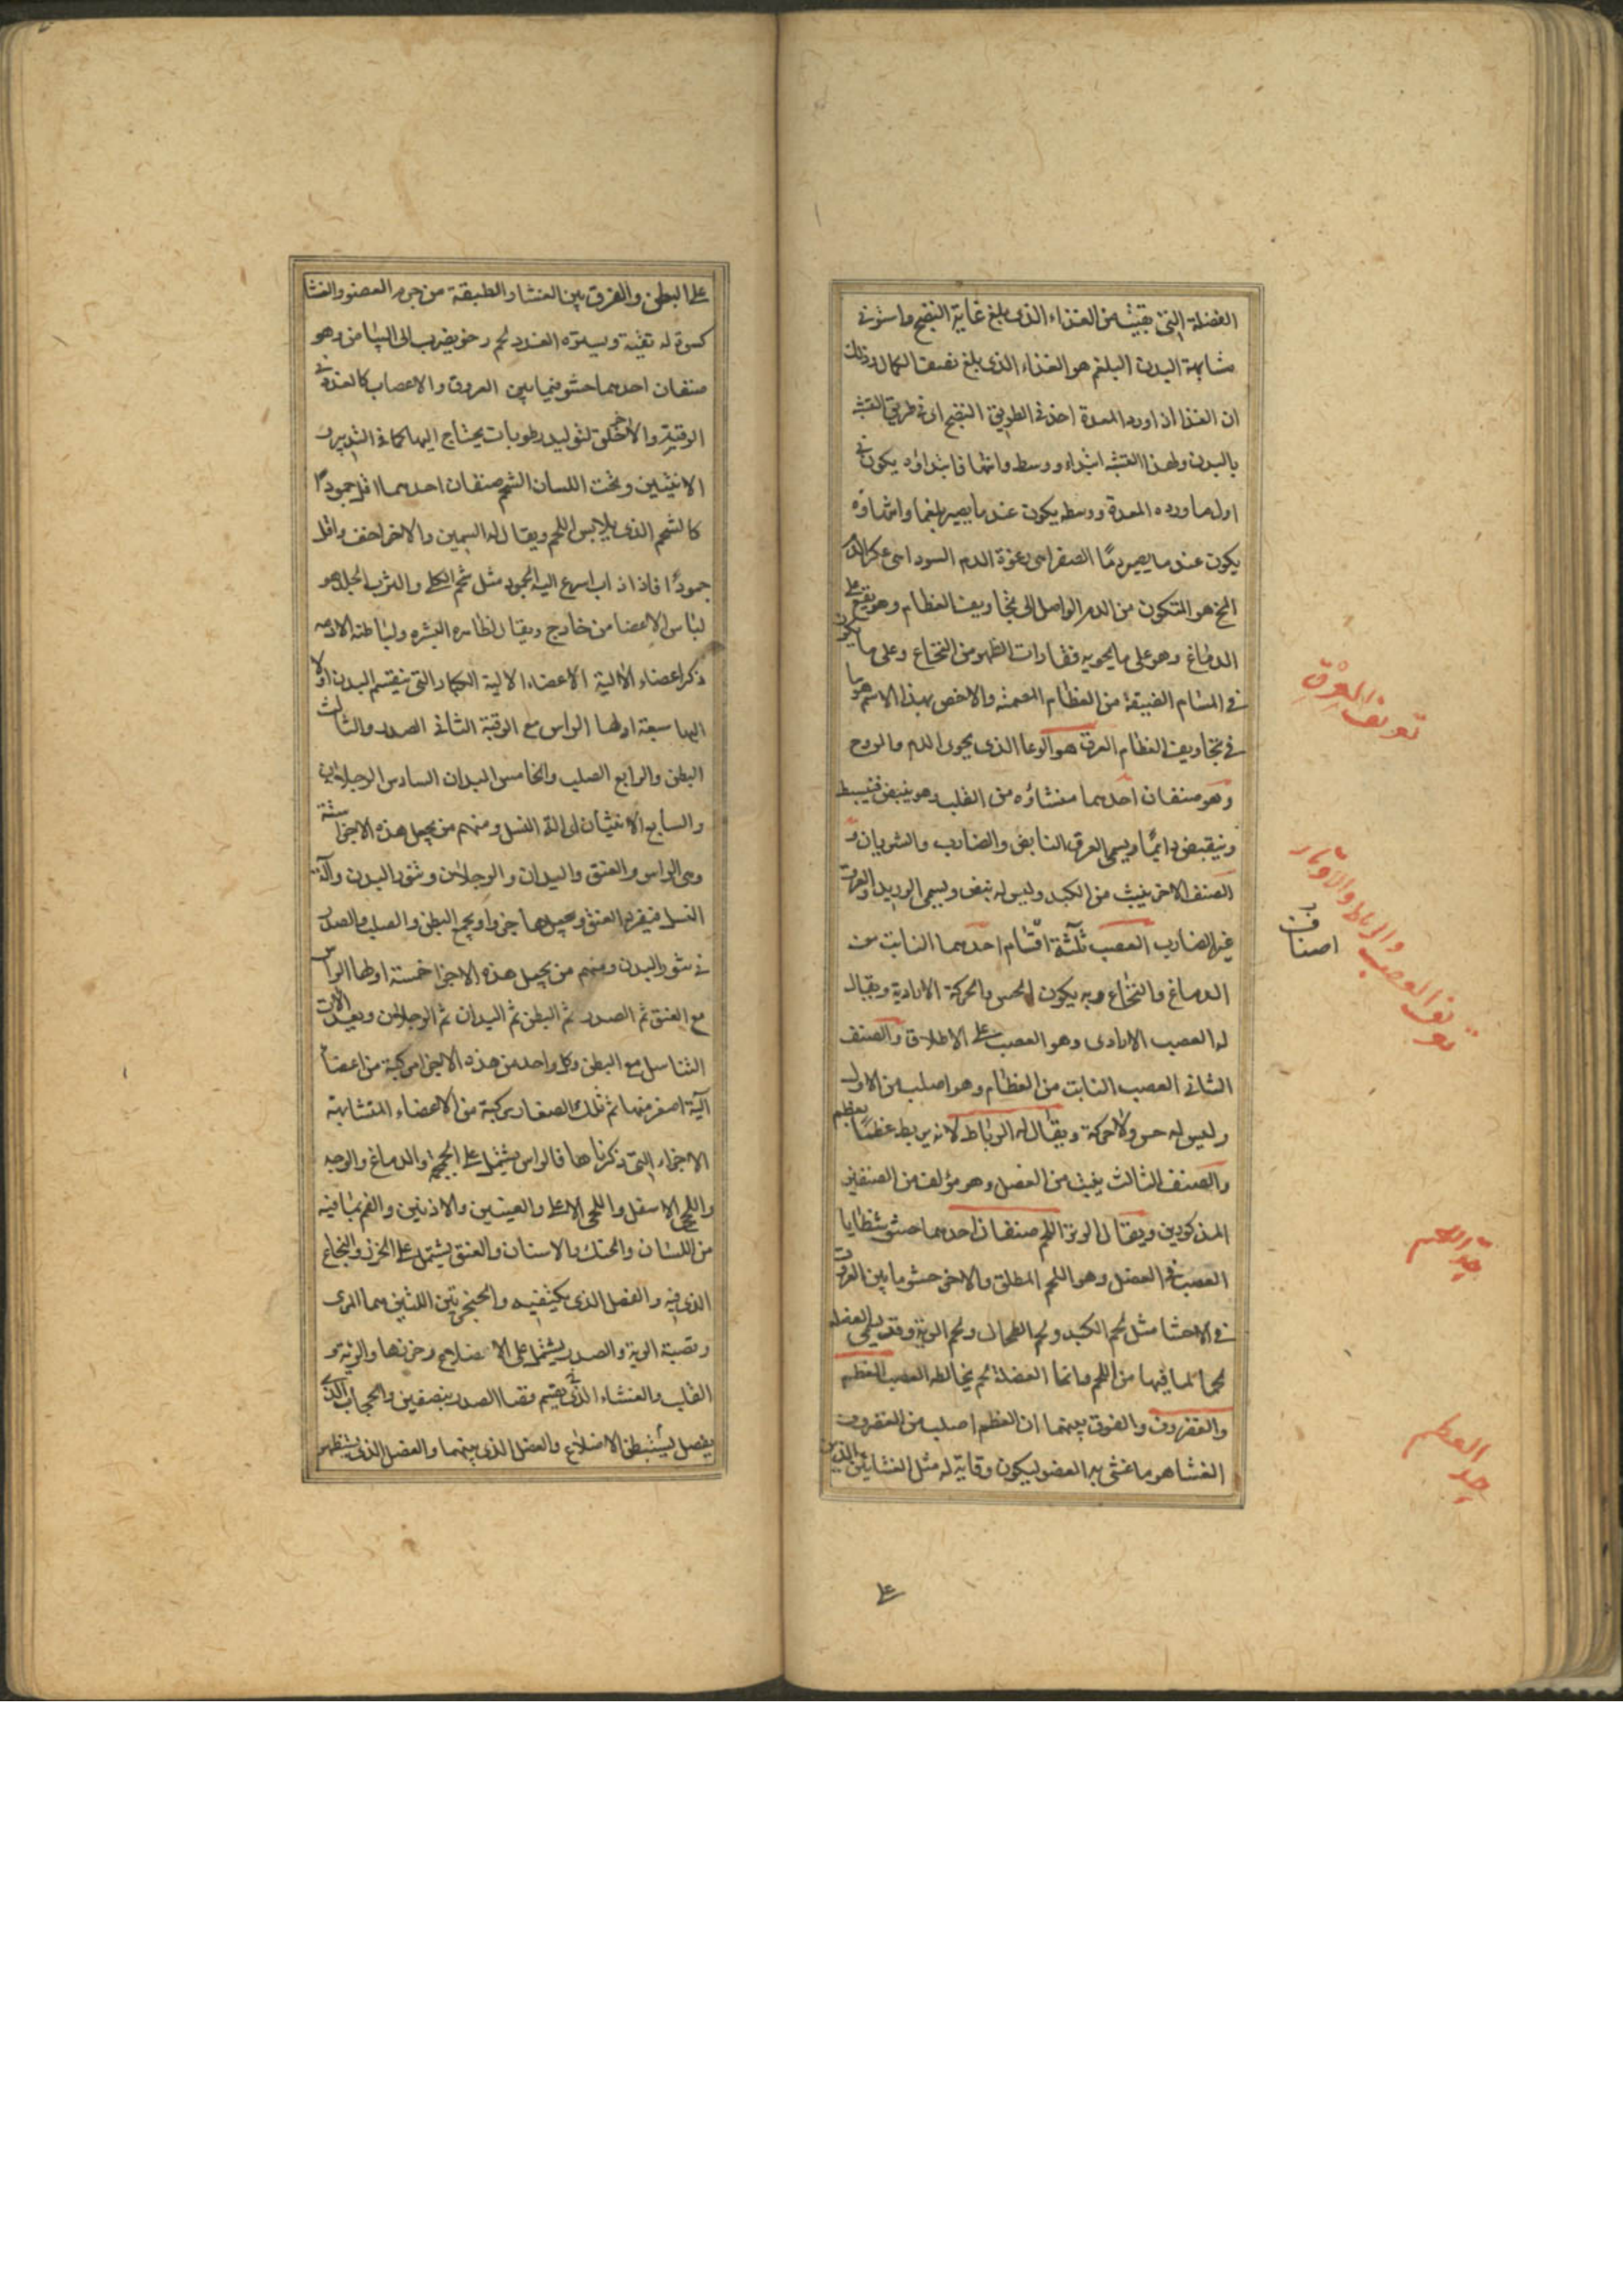 الفضلة التي بقيت من الغذاء الذي بلغ غاية النضج واستوفى
مشابهة البدن البلغم هو الغذاء الذي بلغ نصف الكمال وذلك
ان الغذا اذا ورد المعدة اخذ في الطريق النضج اى في طريق التشبه
بالبدن ولهذا التشبه ابتداء ووسط وانتها فابتداؤه يكون في
اول ما ورده المعدة ووسطه يكون عند ما يصير بلغما وانتهاؤه
يكون عند ما يصير دمًا الصفرا هى رغوة الدم السودا هى عكر الدم
المخ هو المتكون من الدم الواصل الى تجاويف العظام وهو يقع على
الدماغ وهو على ما يحويه فقارات الظهر من النخاع وعلى ما يكون
في المسام الضيقة من العظام المصمتة والاخص بهذا الاسم هو ما
في تجاويف العظام العرق هو الوعا الذي يحوى الدم والروح
وهو صنفان احدهما منشاؤه من القلب وهو ينبض فينبسط
وينقبض دائمًا ويسمى العرق النابض والضارب والشريان و
الصنف الاخر ينبت من الكبد وليس له نبض ويسمى الوريد والعرق
غير الضارب العصب ثلثة اقسام احدهما النابت من
الدماغ والنخاع وبه يكون الحس والحركة الارادية ويقال
له العصب الارادى وهو العصب على الاطلاق والصنف
الثانى العصب النابت من العظام وهو اصلب من الاول
وليس له حس ولا حركة ويقال له الرباط لانه يربط عظمًا بعظم
والصنف الثالث ينبت من العضل وهو مؤلف من الصنفين
المذكورين ويقال له الوتر اللحم صنفان احدهما حشو شظايا
العصب في العضل وهو اللحم المطلق والاخر حشو ما بين العروق
في الاحشا مثل لحم الكبد ولحم الطحال ولحم الرية وقد يسمى العضله
لحما لما فيها من اللحم وانما العضلة لحم يخالطه العصب العظم
والغضروف والفرق بينهما ان العظم اصلب من الغضروف
الغشا هو ما غشى به العضو ليكون وقاية له مثل الغشايئن الذين
على
تعريف العرق
تعريف العصب والرباط والاوتار
اصناف
حد اللحم
حد العظم
على البطن والفرق بين الغشا والطبقة من جرم العضو والغشا
كسوة له تقيه ويستره الغدد لحم رخو يضرب الى البياض وهو
صنفان احدهما حشو فيما بين العروق والاعصاب كالغدة في
الرقبة والاخر خلق لتوليد رطوبات يحتاج اليها كما في الثديين
الانثيين وتحت اللسان الشحم صنفان احدهما اقل جمودًا
كالشحم الذي يلابس اللحم ويقال له السمين والاخر اخف واقل
جمودًا فاذا ذاب اسرع اليه الجمود مثل شحم الكلى والثرب الجلد هو
لباس الاعضا من خارج ويقال لظاهره البشره ولباطنه الادمه
ذكر اعضاء الآلية الاعضاء الالية الكبار التي ينقسم البدن اولا
اليها سبعة اولها الراس مع الرقبة الثانى الصدر والثالث
البطن والرابع الصلب والخامس اليدان السادس الرجلان
والسابع الانثيان اى الة النسل ومنهم من يجعل هذه الاجزا ستة
وهى الراس والعنق واليدان والرجلان وتنور البدن وآلة
النسل فيفرد العنق ويجعلها جزوا ويجمع البطن والصلب والصدر
في تنور البدن ومنهم من يجعل هذه الاجزا خمسة اولها الراس
مع العنق ثم الصدر ثم البطن ثم اليدان ثم الرجلان ويعد الات
التناسل مع البطن وكل واحد من هذه الاجزا مركبة من اعضا
آلية اصغر منها ثم تلك الصغار مركبة من الاعضاء المتشابهة
الاجزاء التي ذكرناها فالراس يشتمل على الجمجمة والدماغ والوجه
واللحى الاسفل واللحى الاعلى والعينين والاذنين والفم بما فيه
من اللسان والحنك والاسنان والعنق يشتمل على الخرز والنخاع
الذي فيه والعضل الذي يكتنفه والحنجرتين اللتين هما المرى
وقصبة الرية والصدر يشتمل على الاضلاع وخرزها والرئة و
القلب والغشاء الذي يقسم فضا الصدر بنصفين والحجاب الذي
يفصل يستبطن الاضلاع والعضل الذي بينهما والعضل الذي يستظهر